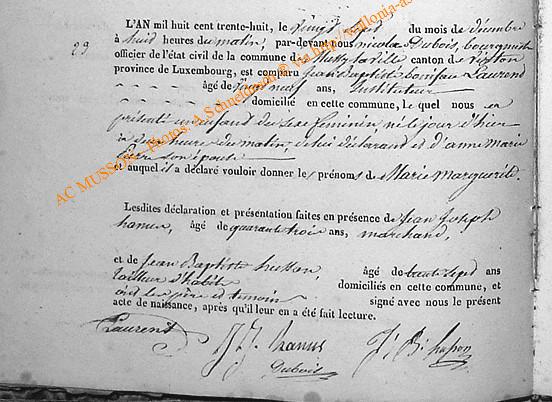 29
L'AN mil huit cent trente-huit, le vingt du mois de décembre
à huit heures du matin, par-devant nous nicolas Dubois, bourgmestre
officier de l'état civil de la commune de Mussy-la-ville canton de virton
province de Luxembourg, est comparu jean Baptiste boniface Laurend
âgé de neuf ans, Instituteur
domicilié en cette commune, le quel nous a
présenté un enfand du sexe feminin, né le jour d'hier
à heure du matin, de lui déclarand et d'anne Marie
son épouse
et auquel il a déclaré vouloir donner les prénoms de Marie marguerite.
Lesdites déclaration et présentation faites en présence de Jean Joseph
hanus, âgé de quarante trois ans, marchand,
et de Jean Baptiste husson, âgé de trente sept ans
tailleur d'habits domiciliés en cette commune, et
ont les père et temoin signé avec nous le présent
acte de naissance, après qu'il leur en a été fait lecture.
Laurent
J J hanus
J. B. husson
Dubois
AC MUSSON - Photos: A.Schneidesch © via http://wallonia-as